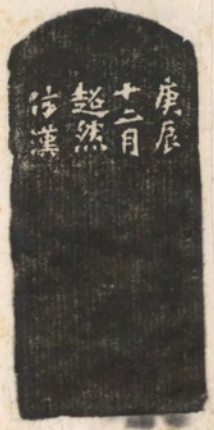 庚辰
十二月
超然
仿漢